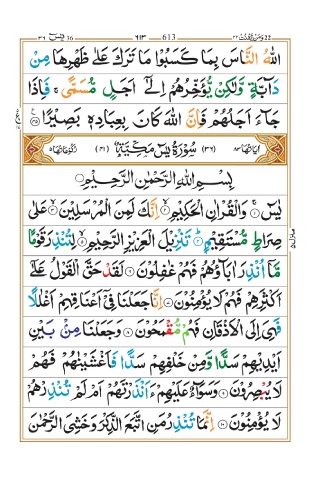 يٰسٓ ٣٦ ٦١٣ 613 ومن يقنت ٢٢
اللّٰهُ النَّاسَ بِمَا كَسَبُوْا مَا تَرَكَ عَلٰى ظَهْرِهَا مِنْ
دَآبَّةٍ وَّلٰكِنْ يُّؤَخِّرُهُمْ اِلٰٓى اَجَلٍ مُّسَمًّى ۚ فَاِذَا
جَآءَ اَجَلُهُمْ فَاِنَّ اللّٰهَ كَانَ بِعِبَادِهٖ بَصِيْرًا ﴿٤٥﴾
اٰيَاتُهَا ٨٣ (٣٦) سُوْرَةُ يٰسٓ مَكِّيَّةٌ (٤١) رُكُوْعَاتُهَا ٥
بِسْمِ اللّٰهِ الرَّحْمٰنِ الرَّحِيْمِ
يٰسٓ ﴿١﴾ وَالْقُرْاٰنِ الْحَكِيْمِ ﴿٢﴾ اِنَّكَ لَمِنَ الْمُرْسَلِيْنَ ﴿٣﴾ عَلٰى
صِرَاطٍ مُّسْتَقِيْمٍ ﴿٤﴾ تَنْزِيْلَ الْعَزِيْزِ الرَّحِيْمِ ﴿٥﴾ لِتُنْذِرَ قَوْمًا
مَّآ اُنْذِرَ اٰبَآؤُهُمْ فَهُمْ غٰفِلُوْنَ ﴿٦﴾ لَقَدْ حَقَّ الْقَوْلُ عَلٰٓى
اَكْثَرِهِمْ فَهُمْ لَا يُؤْمِنُوْنَ ﴿٧﴾ اِنَّا جَعَلْنَا فِيْٓ اَعْنَاقِهِمْ اَغْلٰلًا
فَهِيَ اِلَى الْاَذْقَانِ فَهُمْ مُّقْمَحُوْنَ ﴿٨﴾ وَجَعَلْنَا مِنْۢ بَيْنِ
اَيْدِيْهِمْ سَدًّا وَّمِنْ خَلْفِهِمْ سَدًّا فَاَغْشَيْنٰهُمْ فَهُمْ
لَا يُبْصِرُوْنَ ﴿٩﴾ وَسَوَآءٌ عَلَيْهِمْ ءَاَنْذَرْتَهُمْ اَمْ لَمْ تُنْذِرْهُمْ
لَا يُؤْمِنُوْنَ ﴿١٠﴾ اِنَّمَا تُنْذِرُ مَنِ اتَّبَعَ الذِّكْرَ وَخَشِيَ الرَّحْمٰنَ